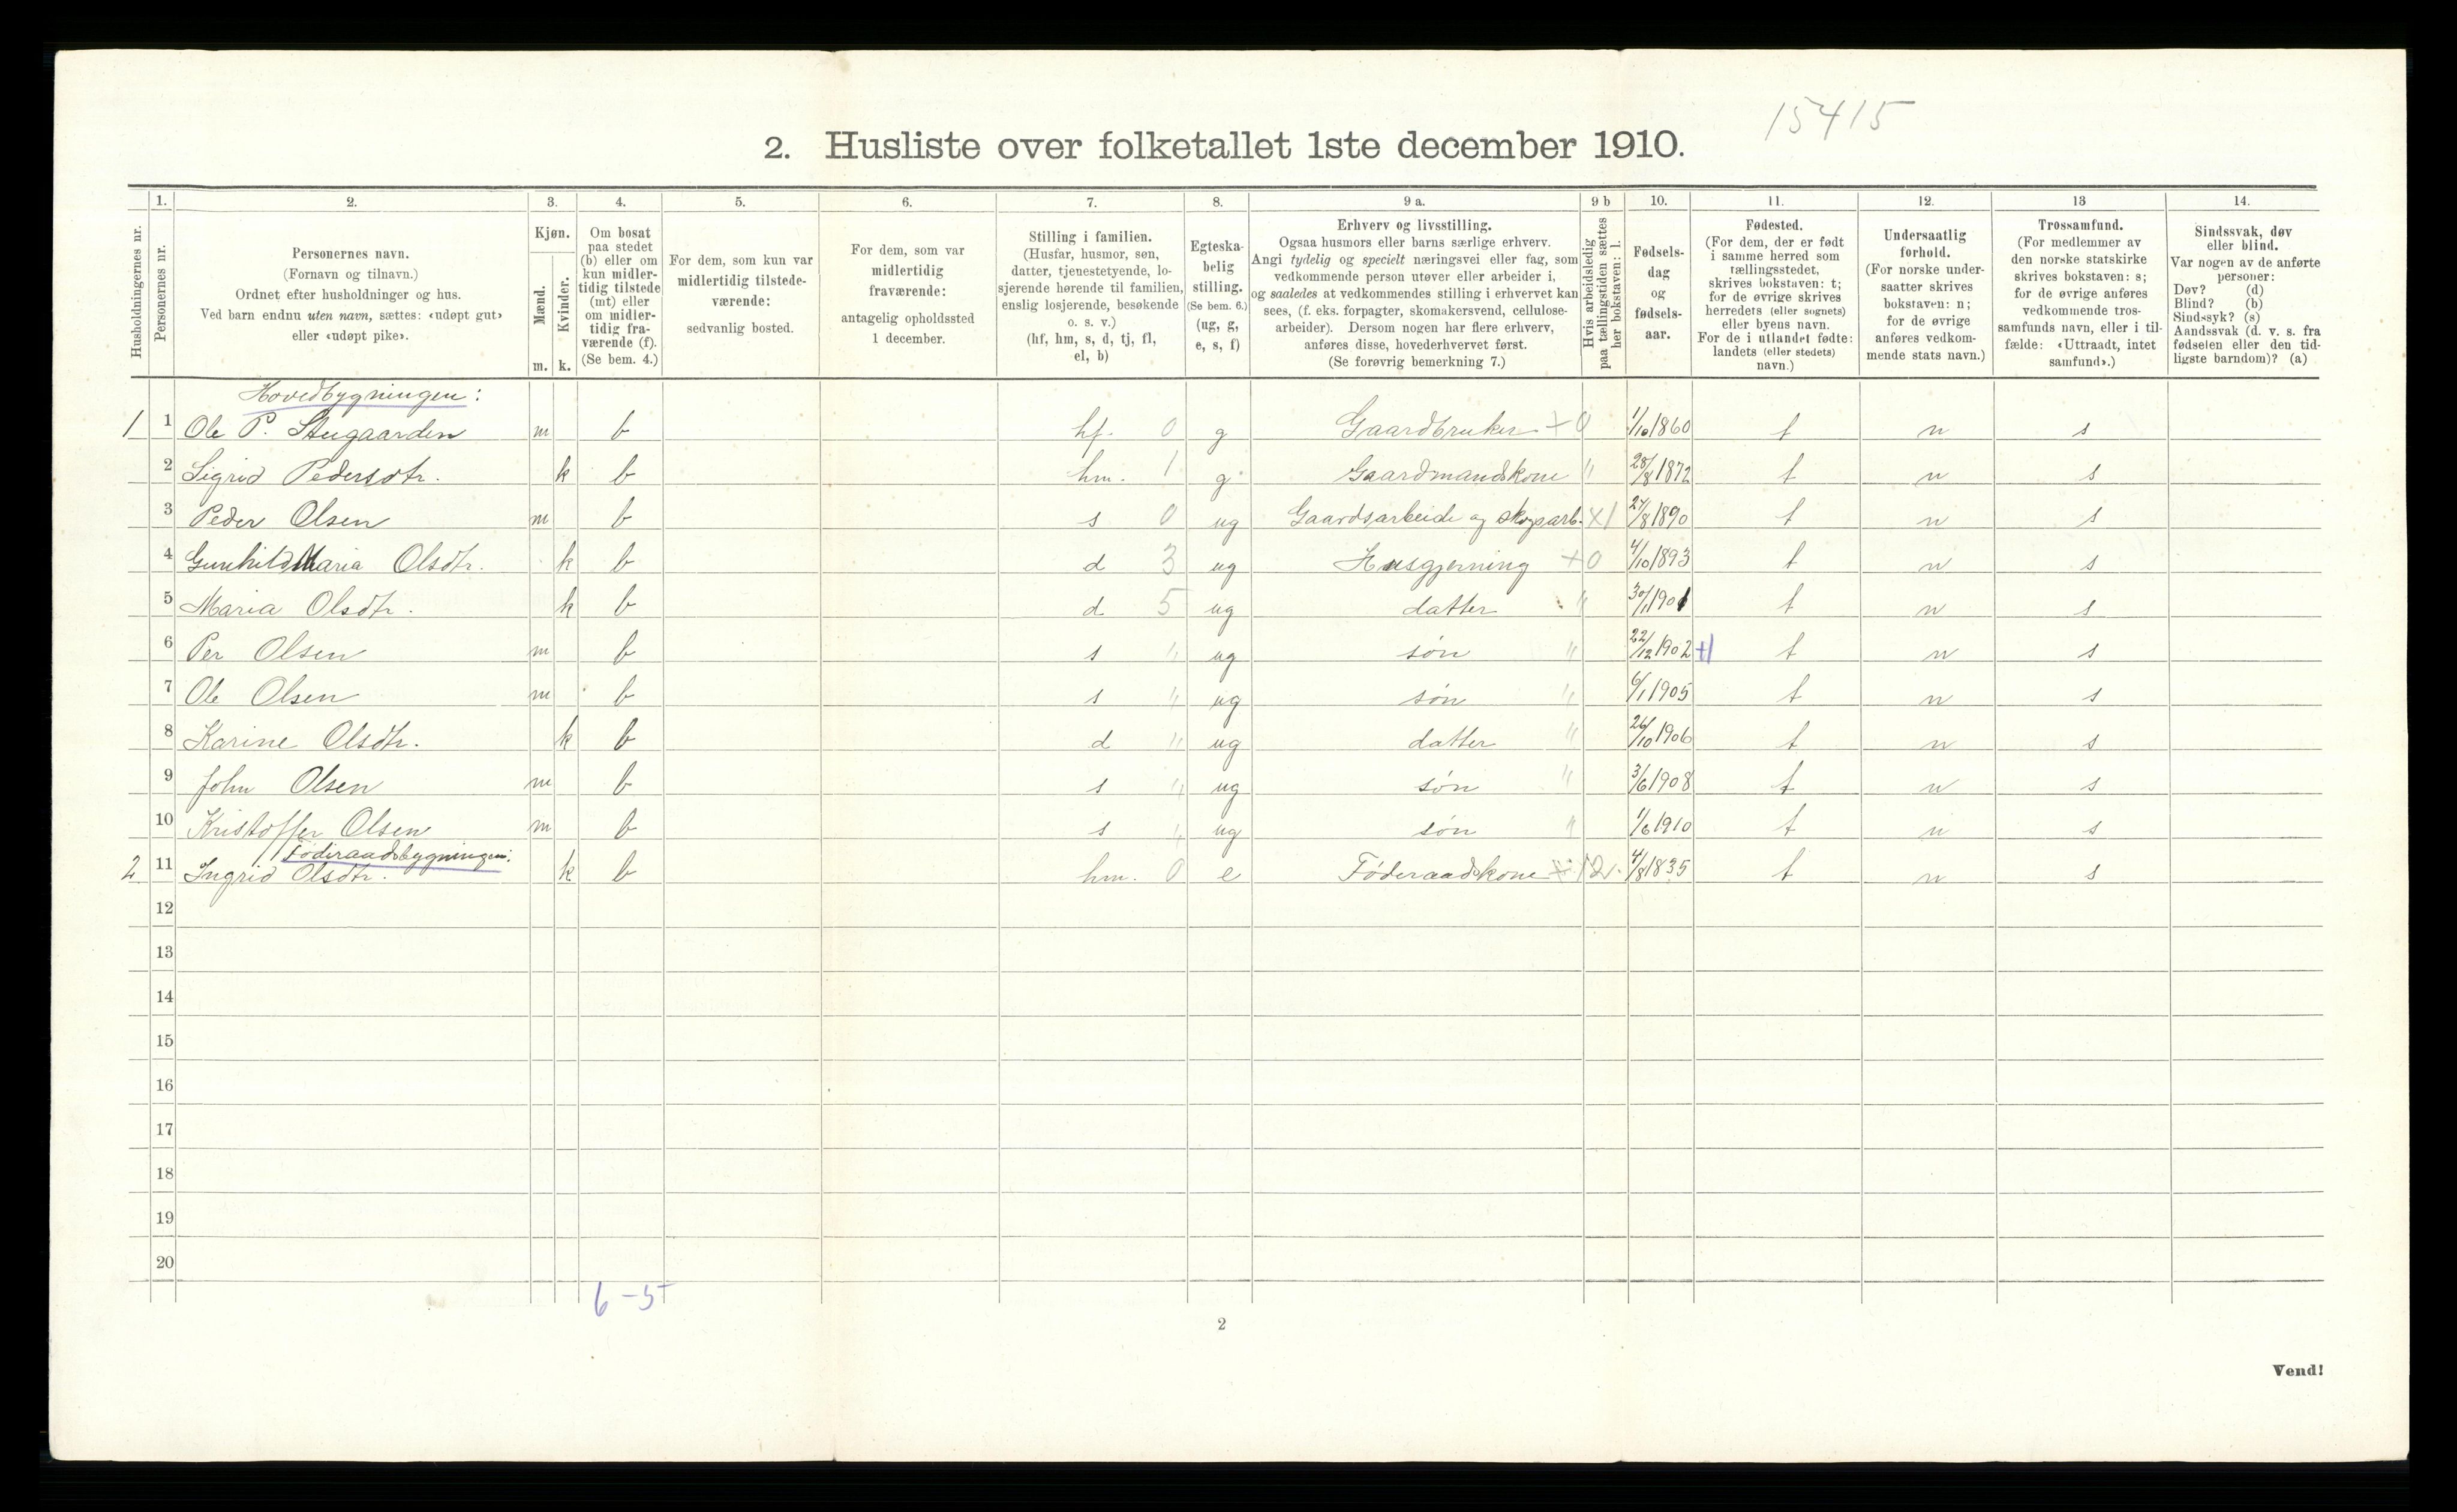 15415
2. Husliste over folketallet 1ste december 1910.
Husholdningernes nr.
1.
Personernes nr.
2.
Personernes navn.
(Fornavn og tilnavn.)
Ordnet efter husholdninger og hus.
Ved barn endnu uten navn, sættes: «udøpt gut»
eller «udøpt pike».
3.
Kjøn.
Mænd.
Kvinder.
m. k.
4.
Om bosat
paa stedet
(b) eller om
kun midler-
tidig tilstede
(mt) eller
om midler-
tidig fra-
værende (f).
(Se bem. 4.)
5.
For dem, som kun var
midlertidig tilstede-
værende:
sedvanlig bosted.
6.
For dem, som var
midlertidig
fraværende:
antagelig opholdssted
1 december.
7.
Stilling i familien.
(Husfar, husmor, søn,
datter, tjenestetyende, lo-
sjerende hørende til familien,
enslig losjerende, besøkende
o. s. v.)
(hf, hm, s, d, tj, fl,
el, b)
8.
Egteska-
belig
stilling.
(Se bem. 6.)
(ug, g,
e, s, f)
9 a.
Erhverv og livsstilling.
Ogsaa husmors eller barns særlige erhverv.
Angi tydelig og specielt næringsvei eller fag, som
vedkommende person utøver eller arbeider i,
og saaledes at vedkommendes stilling i erhvervet kan
sees, (f. eks. forpagter, skomakersvend, cellulose-
arbeider). Dersom nogen har flere erhverv,
anføres disse, hovederhvervet først.
(Se forøvrig bemerkning 7.)
9 b
Hvis arbeidsledig
paa tællingstiden sættes
her bokstaven: l.
10.
Fødsels-
dag
og
fødsels-
aar.
11.
Fødested.
(For dem, der er født
i samme herred som
tællingsstedet,
skrives bokstaven: t;
for de øvrige skrives
herredets (eller sognets)
eller byens navn.
For de i utlandet fødte:
landets (eller stedets)
navn.)
12.
Undersaatlig
forhold.
(For norske under-
saatter skrives
bokstaven: n;
for de øvrige
anføres vedkom-
mende stats navn.)
13
Trossamfund.
(For medlemmer av
den norske statskirke
skrives bokstaven: s;
for de øvrige anføres
vedkommende tros-
samfunds navn, eller i til-
fælde: «Uttraadt, intet
samfund».)
14.
Sindssvak, døv
eller blind.
Var nogen av de anførte
personer:
Døv? (d)
Blind? (b)
Sindssyk? (s)
Aandssvak (d. v. s. fra
fødselen eller den tid-
ligste barndom)? (a)
Hovedbygningen:
1 1 Ole P. Stugaarden m b hf. 0 g Gaardbruker + 0 1/10 1860 t n s
2 Sigrid Pedersdtr. k b hm. 1 g Gaardmandskone " 28/8 1872 t n s
3 Peder Olsen m b s 0 ug Gaardsarbeide og skogsarb. X1 27/8 1890 t n s
4 Gunhild Maria Olsdtr. k b d 3 ug Husgjerning + 0 4/10 1893 t n s
5 Maria Olsdtr. k b d 5 ug datter " 30/1 1901 t n s
6 Per Olsen m b s " ug søn " 22/12 1902 +1 t n s
7 Ole Olsen m b s " ug søn " 6/1 1905 t n s
8 Karine Olsdtr. k b d " ug datter " 26/10 1906 t n s
9 John Olsen m b s " ug søn " 3/6 1908 t n s
10 Kristoffer Olsen m b s " ug søn " 1/6 1910 t n s
Föderaadsbygningen:
2 11 Ingrid Olsdtr. k b hm. 0 e Föderaadskone 4/8 1835 t n s
12
13
14
15
16
17
18
19
20
6 - 5
2
Vend!